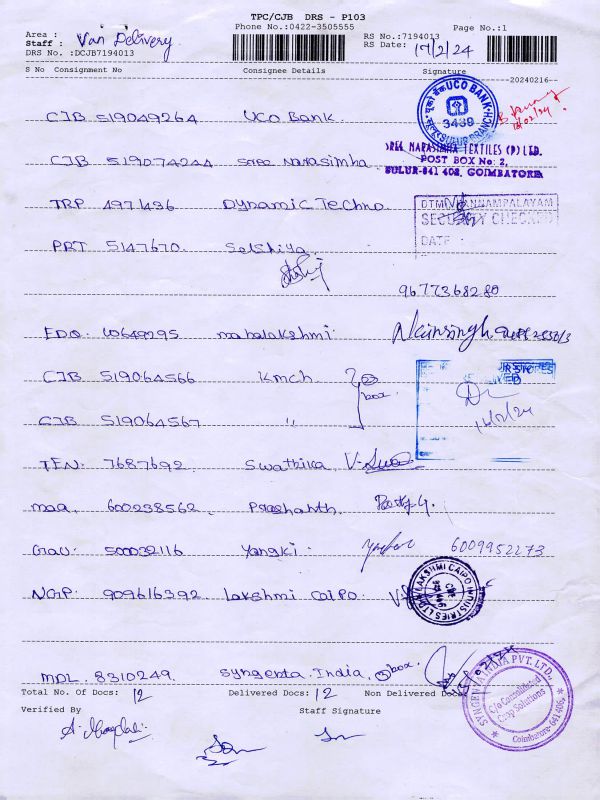 TPC/CJB DRS - P103
Phone No.:0422-3505555 Page No.:1
Area :
Staff : Van Delivery RS No.:7194013
DRS No. :DCJB7194013 RS Date: 17/2/24
S No Consignment No Consignee Details Signature
20240216
CJB 519049264 UCO Bank
UCO BANK 3439 SULUR BRANCH
CJB 519074244 Sree Narasimha
SREE NARASIMHA TEXTILES (P) LTD.
POST BOX No: 2,
SULUR-641 402, COIMBATORE
TRP 4971496 Dynamic Techno
SECURITY CHECKED
DATE :
PRT 5147670
9677368280
EDQ. 10649295 mahalakshmi
CJB 519064566 Kmch box
CJB 519064567 "
TEN: 7687692 Swathika
maa. 600238562 Prashanth
Gau: 500032116 Yangki: 6009952273
NGP: 909616392 Lakshmi Caipo
LAKSHMI CAIPO INDUSTRIES LTD
MDL. 8310249 Syngenta. India, box
Total No. Of Docs: 12 Delivered Docs: 12 Non Delivered Docs
SYNGENTA INDIA PVT. LTD.,
C/o Consolidated
Crop Solutions
Coimbatore-641406.
Verified By Staff Signature